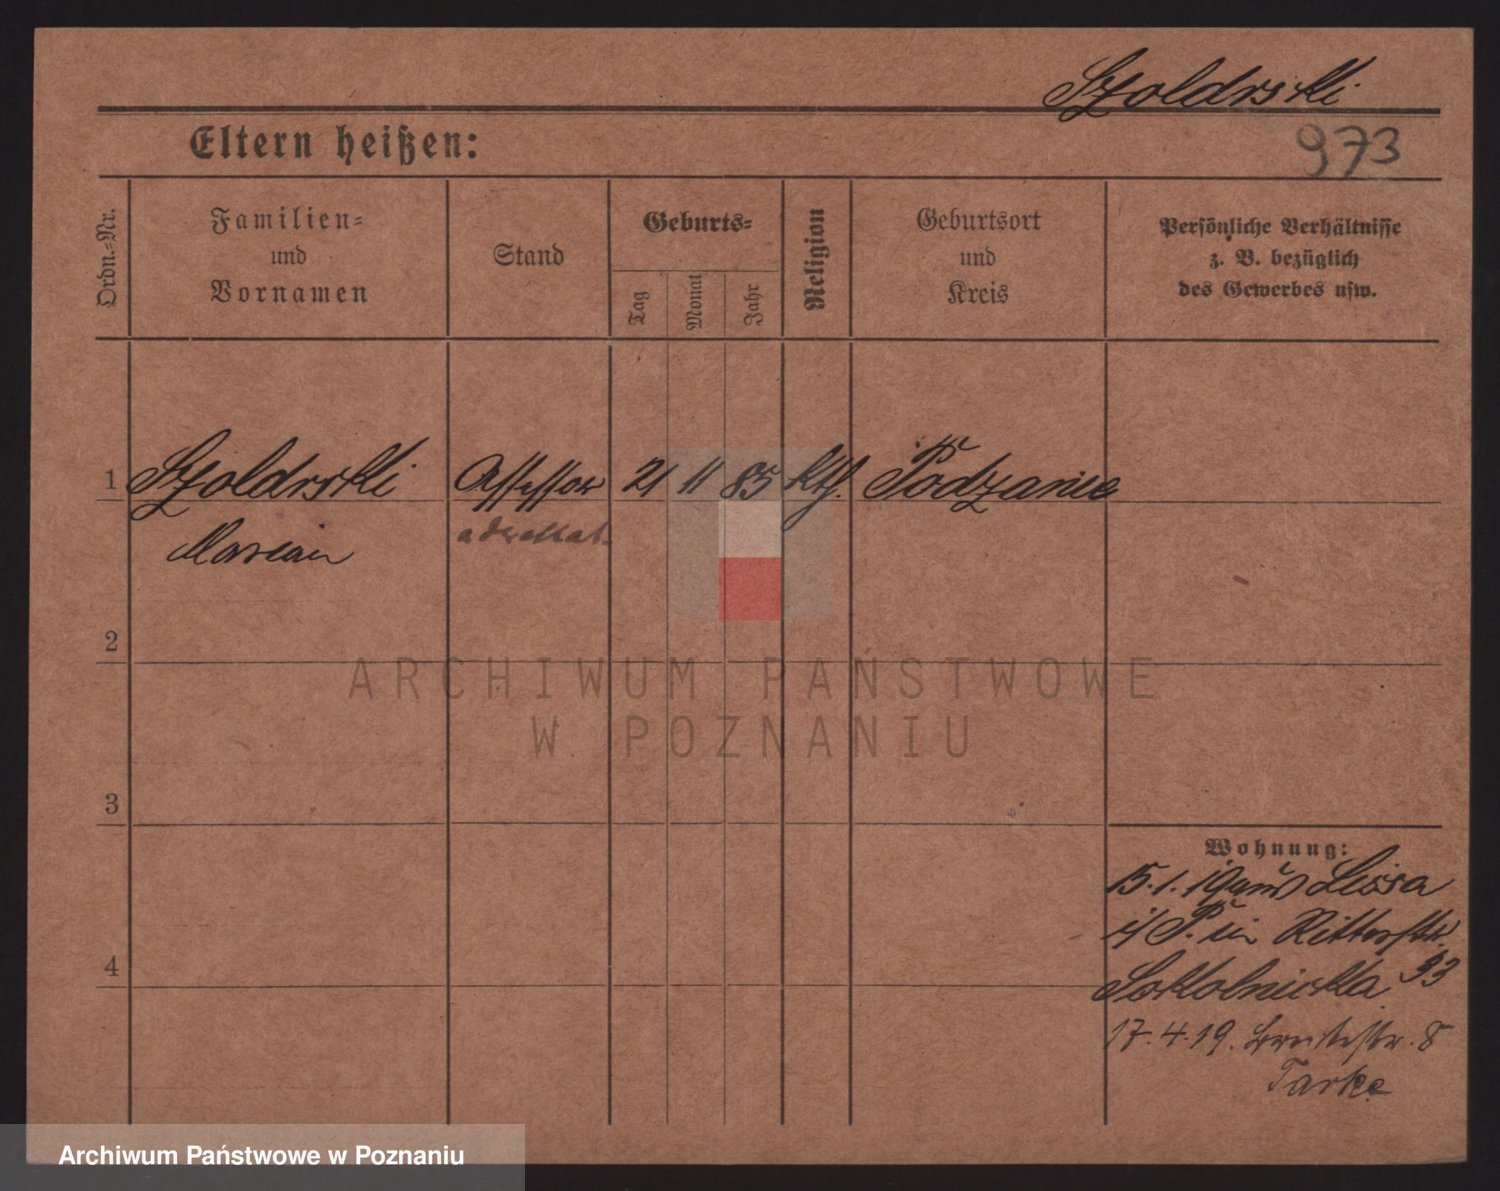 Szoldrski
Eltern heißen:
973
Ordn.-Nr.
Familien-
und
Vornamen
Stand
Geburts-
Tag
Monat
Jahr
Religion
Geburtsort
und
Kreis
Persönliche Verhältnisse
z. B. bezüglich
des Gewerbes usw.
1
Szoldrski
Assessor
21
11
85
kth.
Podzamce
adwokat
Marian
2
ARCHIWUM PAŃSTWOWE
W POZNANIU
3
Wohnung:
15.1.19 aus Lissa
i/P. in Ritterstr.
4
Sokolnicka 33
17.4.19. Breitestr. 8
Tarke
Archiwum Państwowe w Poznaniu